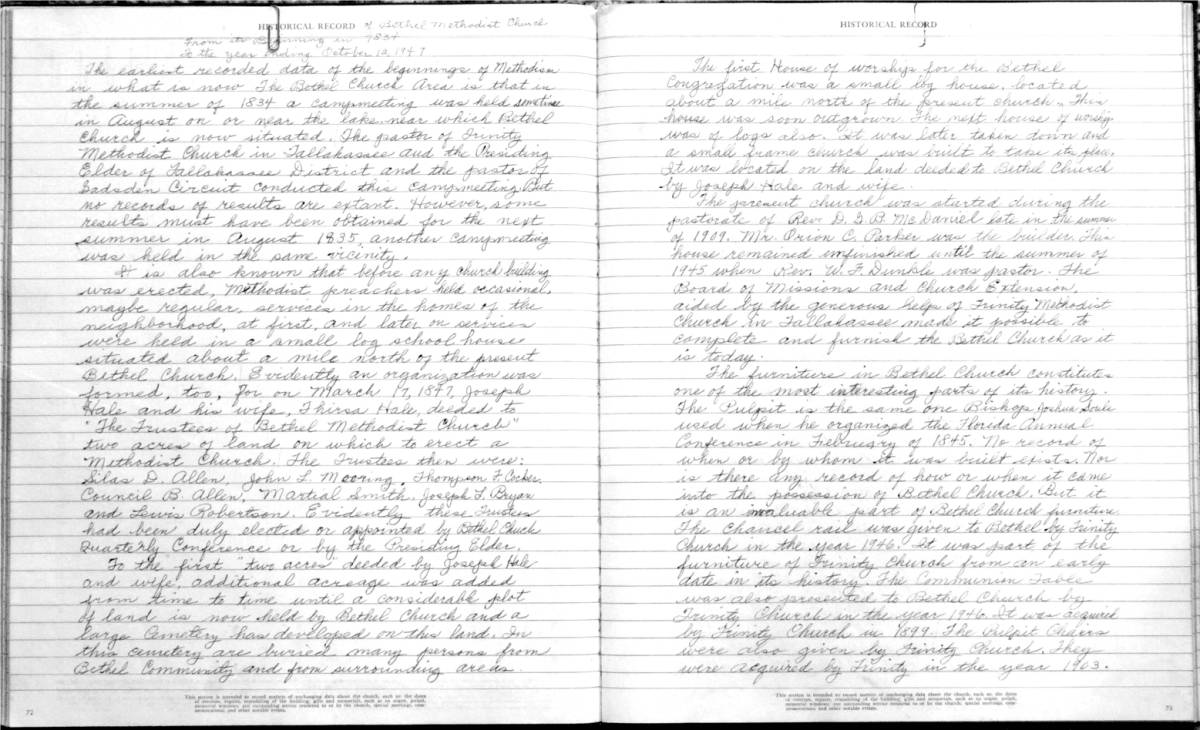 HISTORICAL RECORD of Bethel Methodist Church
From its Beginning in 1834
To the year ending October 12, 1947
The earliest recorded data of the beginnings of Methodism
in what is now The Bethel Church Area is that in
the summer of 1834 a campmeeting was held sometime
in August on or near the lake near which Bethel
Church is now situated. The pastor of Trinity
Methodist Church in Tallahassee and the Presiding
Elder of Tallahassee District and the pastor of
Gadsden Circuit conducted this campmeeting. But
no records of results are extant. However, some
results must have been obtained for the next
summer in August 1835, another campmeeting
was held in the same vicinity.
It is also known that before any church building
was erected, Methodist preachers held occasional,
maybe regular, services in the homes of the
neighborhood, at first, and later on services
were held in a small log school house
situated about a mile north of the present
Bethel Church. Evidently an organization was
formed, too, for on March 17, 1847, Joseph
Hale and his wife, Thirsa Hale, deeded to
"The Trustees of Bethel Methodist Church"
two acres of land on which to erect a
Methodist Church. The Trustees then were:
Silas D. Allen, John L. Mooring, Thompson F. Cocker,
Council B. Allen, Martial Smith, Joseph L. Bryan
and Lewis Robertson. Evidently these Trustees
had been duly elected or appointed by Bethel Chuch
Quarterly Conference or by the Presiding Elder.
To the first two acres deeded by Joseph Hale
and wife, additional acreage was added
from time to time until a considerable plot
of land is now held by Bethel Church and a
large Cemetery has developed on this land. In
this cemetery are buried many persons from
Bethel Community and from surrounding areas.
This section is intended to record matters of unchanging data about the church, such as the dates
of erection, repairs, remodeling of the building, gifts and memorials, such as an organ, pulpit,
memorial windows; any outstanding service rendered to or by the church, special meetings, com-
memorations, and other notable events.
72
HISTORICAL RECORD
The first House of worship for the Bethel
Congregation was a small log house, located
about a mile north of the present church. This
house was soon outgrown. The next house of worship
was of logs also. It was later taken down and
a small frame church was built to take its place.
It was located on the land deeded to Bethel Church
by Joseph Hale and wife.
The present church was started during the
pastorate of Rev. D. G. B. McDaniel late in the summer
of 1909. Mr. Orion C. Parker was the builder. This
house remained unfinished until the summer of
1945 when Rev. W. F. Dunkle was pastor. The
Board of Missions and Church Extension,
aided by the generous help of Trinity Methodist
Church in Tallahassee made it possible to
complete and furnish the Bethel Church as it
is today.
The furniture in Bethel Church constitutes
one of the most interesting parts of its history.
The Pulpit is the same one Bishop Joshua Soule
used when he organized the Florida Annual
Conference in February of 1845. No record of
when or by whom it was built exists. Nor
is there any record of how or when it came
into the possession of Bethel Church. But it
is an invaluable part of Bethel Church furniture.
The Chancel rail was given to Bethel by Trinity
Church in the year 1946. It was part of the
furniture of Trinity Church from an early
date in its history. The Communion Table
was also presented to Bethel Church by
Trinity Church in the year 1946. It was acquired
by Trinity Church in 1899. The Pulpit Chairs
were also given by Trinity Church. They
were acquired by Trinity in the year 1903.
This section is intended to record matters of unchanging data about the church, such as the dates
of erection, repairs, remodeling of the building, gifts and memorials, such as an organ, pulpit,
memorial windows; any outstanding service rendered to or by the church, special meetings, com-
memorations, and other notable events.
73